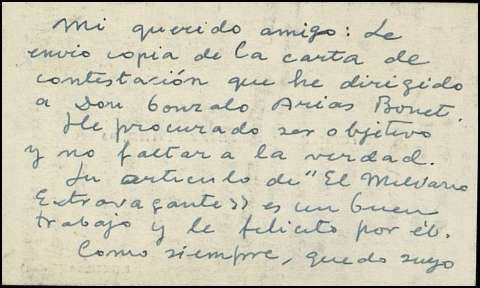 Mi querido amigo: Le
envio copia de la carta de
contestación que he dirigido
a Don Gonzalo Arias Bonet.
He procurado ser objetivo
y no faltar a la verdad.
Su articulo de "El Milvano
Extravagante" es un buen
trabajo y le felicito por él.
Como siempre, quedo suyo